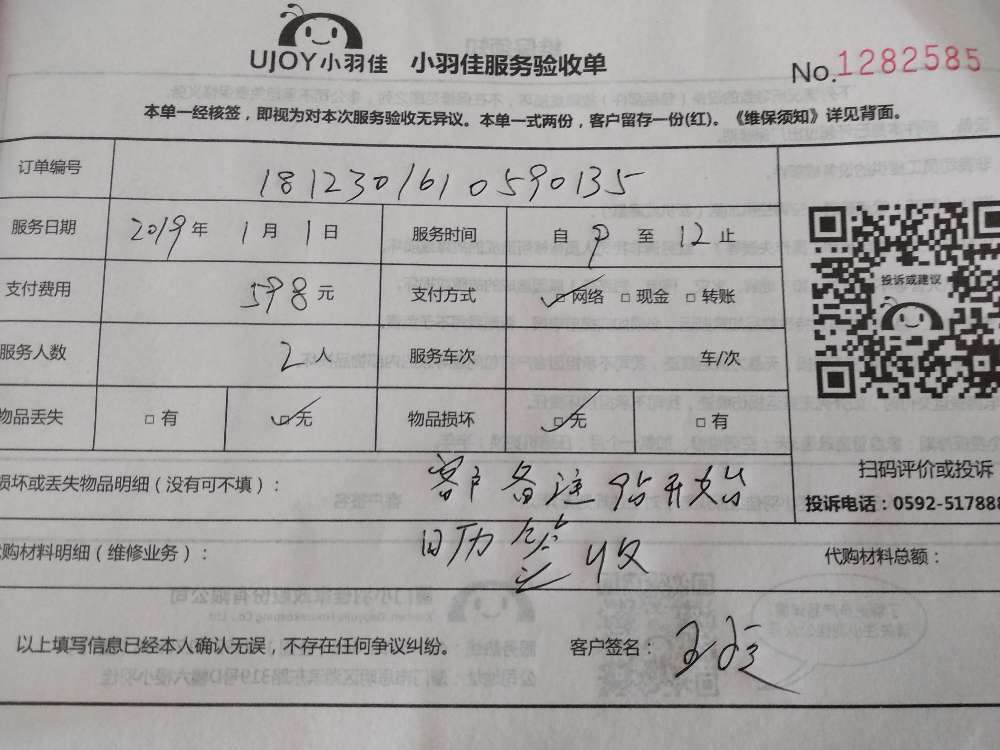 UJOY小羽佳 小羽佳服务验收单 No.1282585
本单一经核签，即视为对本次服务验收无异议。本单一式两份，客户留存一份(红)。《维保须知》详见背面。
订单编号 1812301610590135
服务日期 2019年 1月 1日 服务时间 自 9 至 12 止
支付费用 598元 支付方式 □网络 □现金 □转账
投诉或建议
服务人数 2人 服务车次 车/次
物品丢失 □有 □无 物品损坏 □无 □有
扫码评价或投诉
损坏或丢失物品明细（没有可不填）： 客户备注
投诉电话：0592-517888
代购材料明细（维修业务）： 日历 收 代购材料总额：
以上填写信息已经本人确认无误，不存在任何争议纠纷。 客户签名：